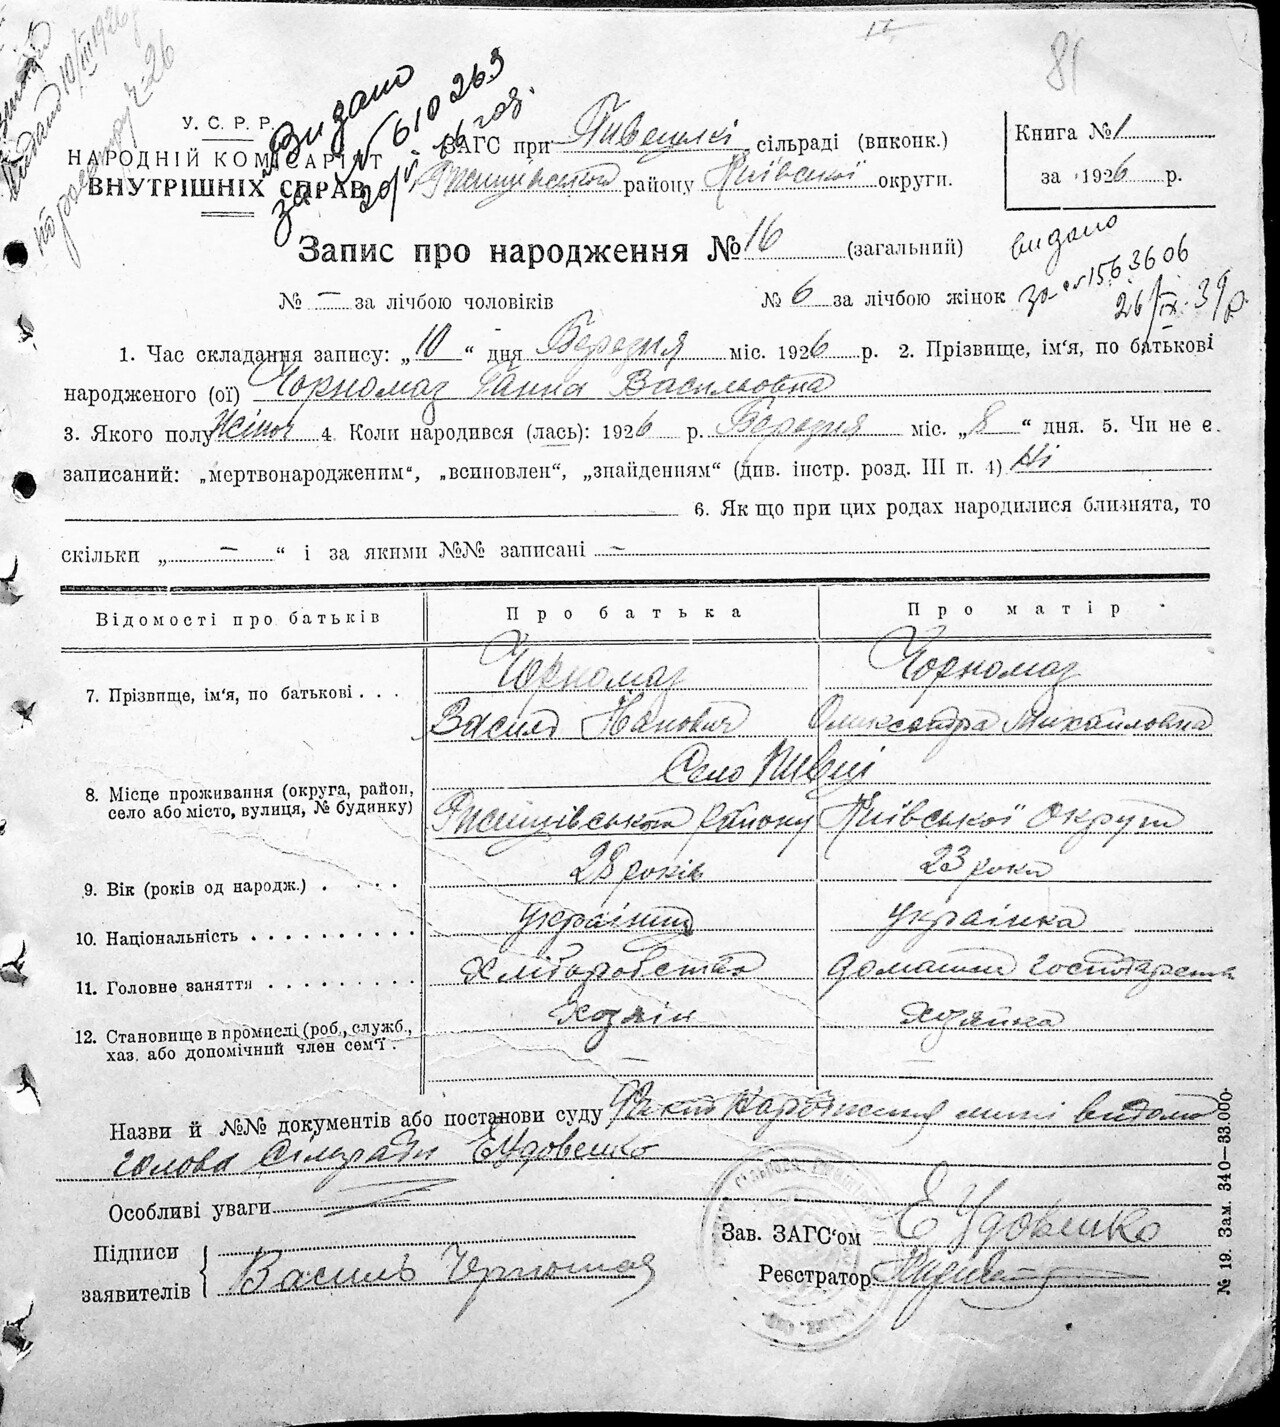 81
Видано
за № 610263
У. С. Р. Р.
НАРОДНІЙ КОМІСАРІЯТ
ВНУТРІШНІХ СПРАВ
ЗАГС при Пивецькі сільраді (виконк.)
Ржищівського району Київської округи.
Книга № 1
за 1926 р.
Запис про народження № 16 (загальний)
видано
за № 1563606
26/IX 39 р
№ — за лічбою чоловіків № 6 за лічбою жінок
1. Час складання запису: „10“ дня Березня міс. 1926 р. 2. Прізвище, ім'я, по батькові
народженого (ої) Чорномаз Ганна Васильовна
3. Якого полу Жіноч 4. Коли народився (лась): 1926 р. Березня міс. „8“ дня. 5. Чи не є
записаний: „мертвонародженим“, „всиновлен“, „знайденням“ (див. інстр. розд. III п. 4) Ні
6. Як що при цих родах народилися близнята, то
скільки „ — “ і за якими №№ записані —
Відомості про батьків Про батька Про матір
Чорномаз Чорномаз
7. Прізвище, ім'я, по батькові . . .
Василь Іванович Олександра Михайловна
Село Пивці
8. Місце проживання (округа, район,
село або місто, вулиця, № будинку)
Ржищівського Району Київської Округи
9. Вік (років од народж.) . . . . 28 років 23 роки
10. Національність . . . . . . . . . . українець українка
11. Головне заняття . . . . . . . . . Хліборобство домашнє господарство
12. Становище в промислі (роб., служб., хозяін хозяйка
хаз. або допомічний член сем'ї .
— —
Назви й №№ документів або постанови суду Факт народження мині видомо
голова сілради Е Удовенко
Особливі уваги
Підписи
заявителів Василь Чорномаз
Зав. ЗАГС'ом Е Удовенко
Реєстратор
№ 19. Зам. 340—33.000.